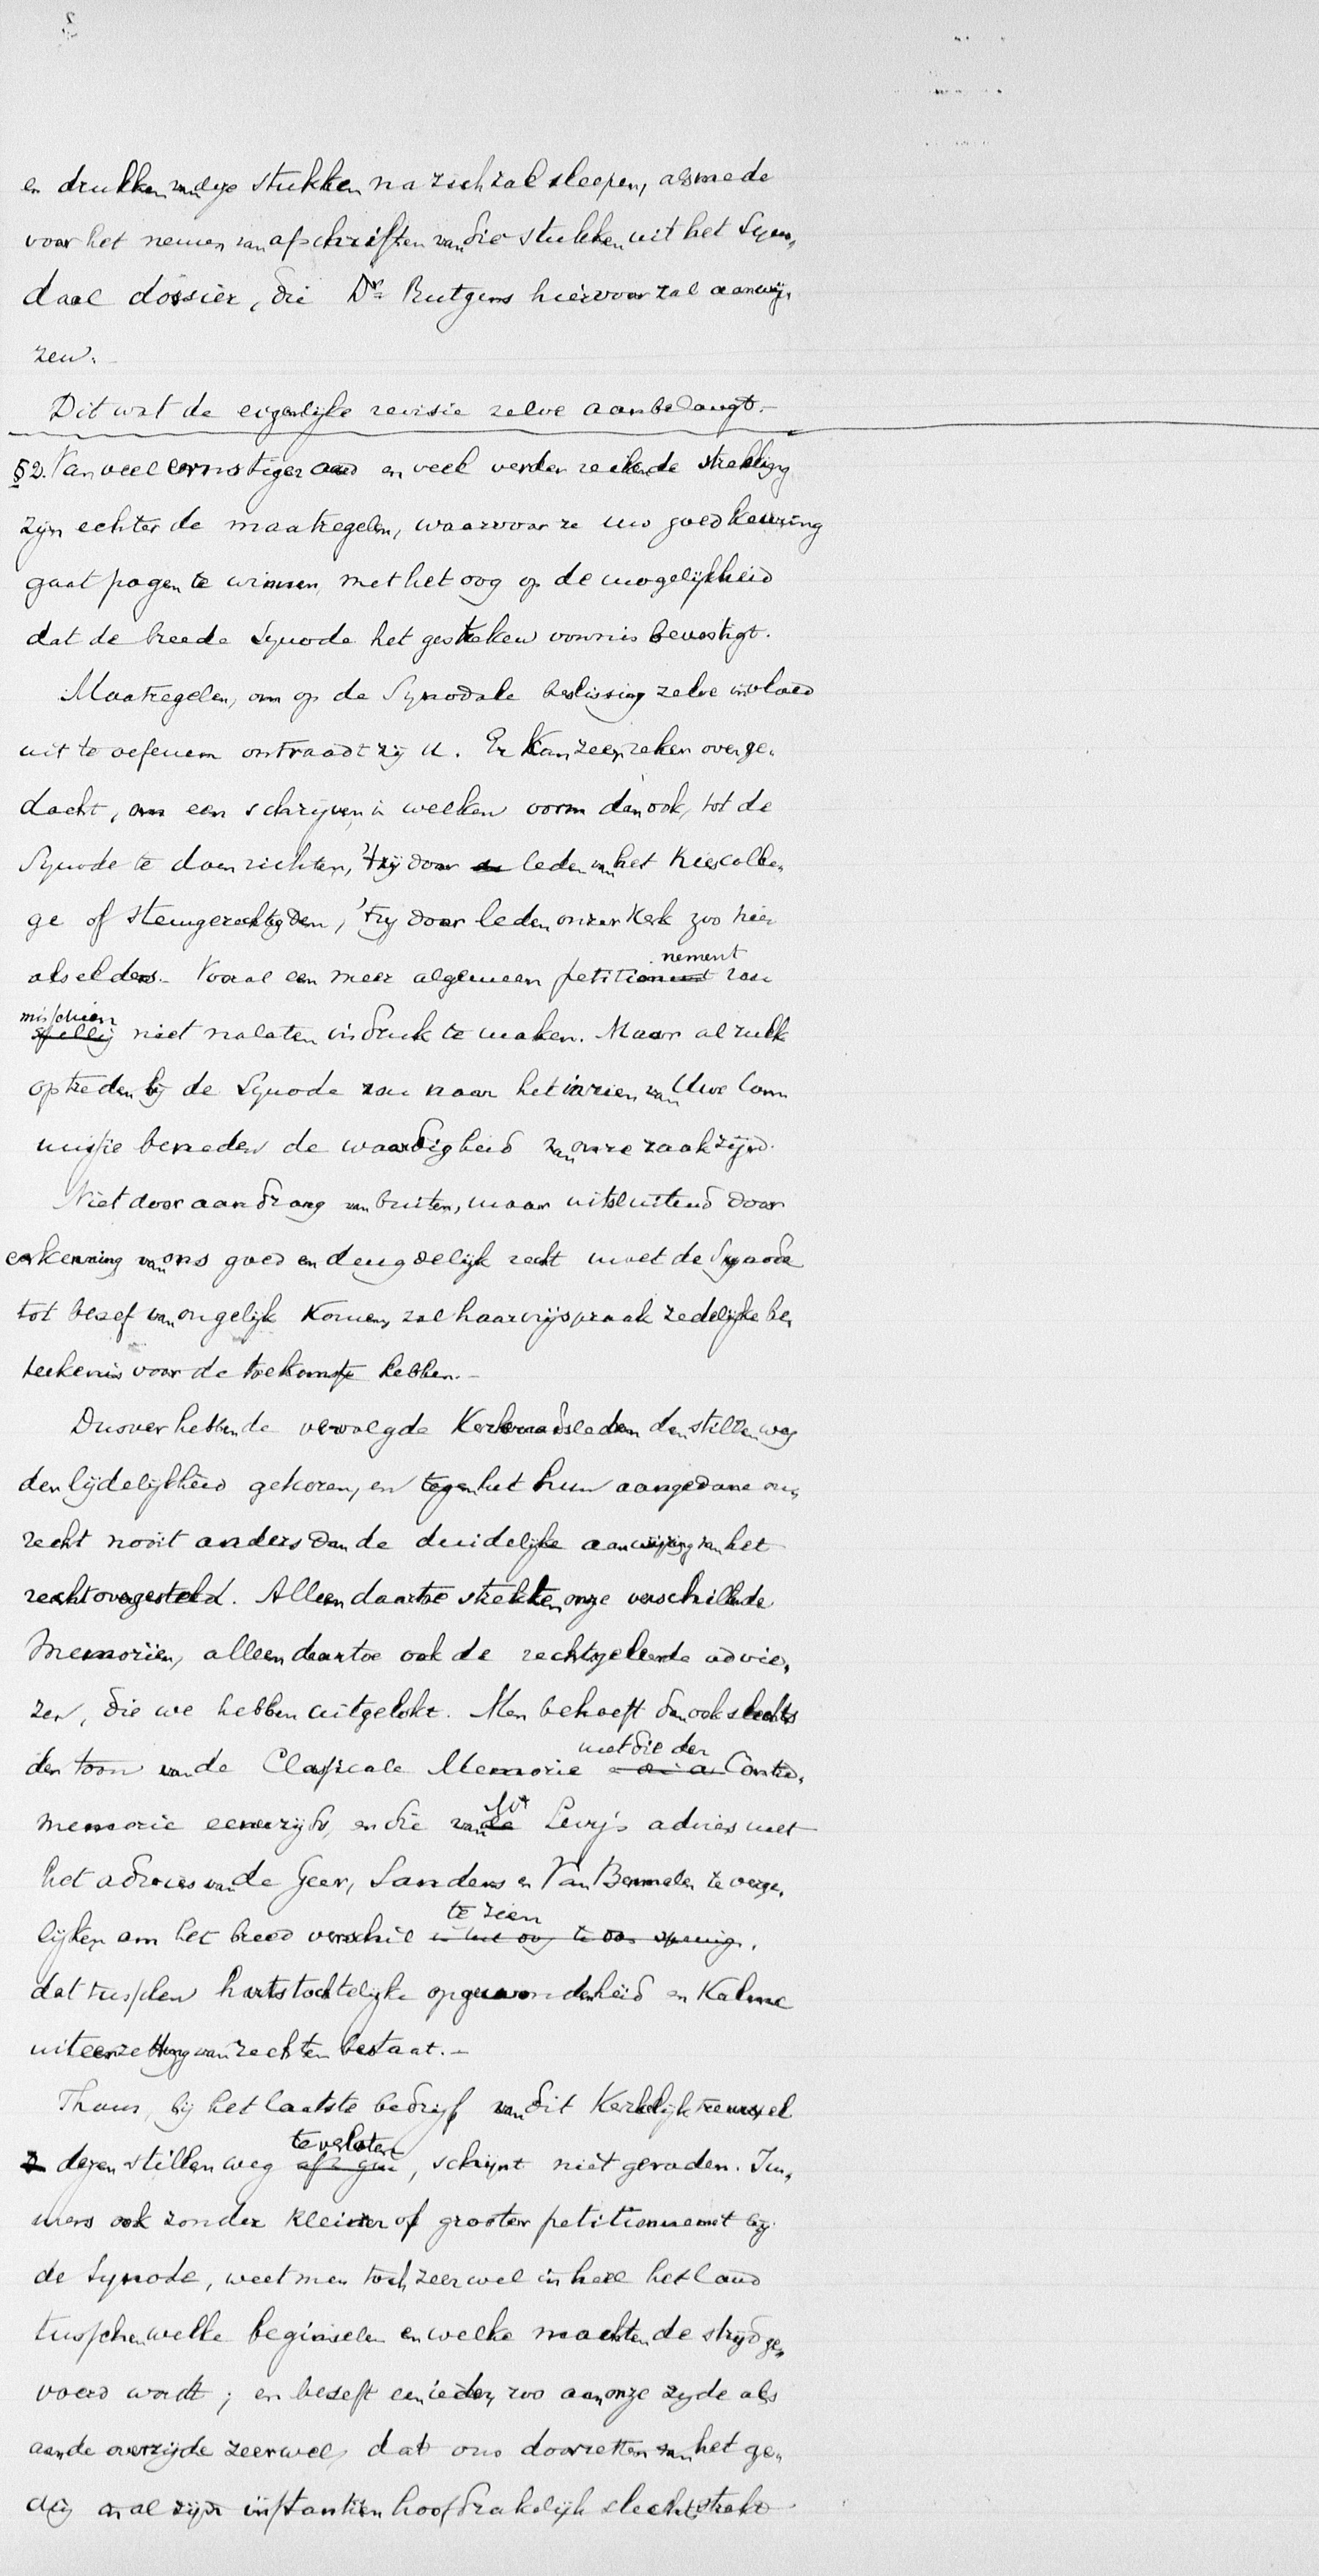 en drukken van deze stukken na zich zal sleepen, alsmede
voor het nemen van afschriften van die stukken uit het Syno„
daal dossier, die Dr. Rutgers hiervoor zal aanwij„
zen.
Dit wat de eigenlijke revisie zelve aanbelangt.–
§2. Van veel ernstiger aard en veel verder reikende strekking
zijn echter de maatregelen, waarvoor ze uw goedkeuring
gaat pogen te winnen, met het oog op de mogelijkheid
dat de breede Synode het gestreken vonnis bevestigt.
Maatregelen, om op de Synodale beslissing zelve invloed
uit te oefenen ontraadt zij U. Er kan zeer zeker over ge„
dacht, om een schrijven, in welken vorm dan ook, tot de
Synode te doen richten, 't zij door leden van het Kiescolle„
ge of stemgerechtigden, 't zij door leden onzer Kerk zoo hier
als elders.– Vooral een meer algemeen petitionnement zou
misschien niet nalaten indruk te maken. Maar al zulk
optreden bij de Synode zou naar het inzien van Uwe Com
missie beneden de waardigheid van onze zaak zijn.
Niet door aandrang van buiten, maar uitsluitend door
erkenning van ons goed en deugdelijk recht moet de Synode
tot besef van ongelijk komen, zal haar vrijspraak zedelijke be„
teekenis voor de toekomst hebben.–
Dusver hebben de vervolgde Kerkeraadsleden den stillen weg
der lijdelijkheid gekozen, en tegen het hun aangedane on„
recht nooit anders dan de duidelijke aanwijzing van het
recht overgesteld. Alleen daartoe strekten onze verschillende
Memoriën, alleen daartoe ook de rechtsgeleerde advie„
zen, die we hebben uitgelokt. Men behoeft dan ook slechts
den toon van de Classicale Memorie met die der Contra„
memorie eenerzijds, en die van Mr Levy's advies met
het advies van de Geer, Sanders en Van Bemmelen te verge„
lijken om het breed verschil te zien,
dat tusschen hartstochtelijke opgewondenheid en Kalme
uiteenzetting van rechten bestaat.–
Thans, bij het laatste bedrijf van dit Kerkelijk treurspel
dezen stillen weg te verlaten, schijnt niet geraden. Im„
mers ook zonder kleiner of grooter petitionnement bij
de Synode, weet men toch zeer wel in heel het land
tusschen welke beginselen en welke machten de strijd ge„
voerd wordt; en beseft een ieder, zoo aan onze zijde als
aan de overzijde zeer wel, dat ons doorzetten van het ge„
ding in al zijn instantiën hoofdzakelijk slechts strekt